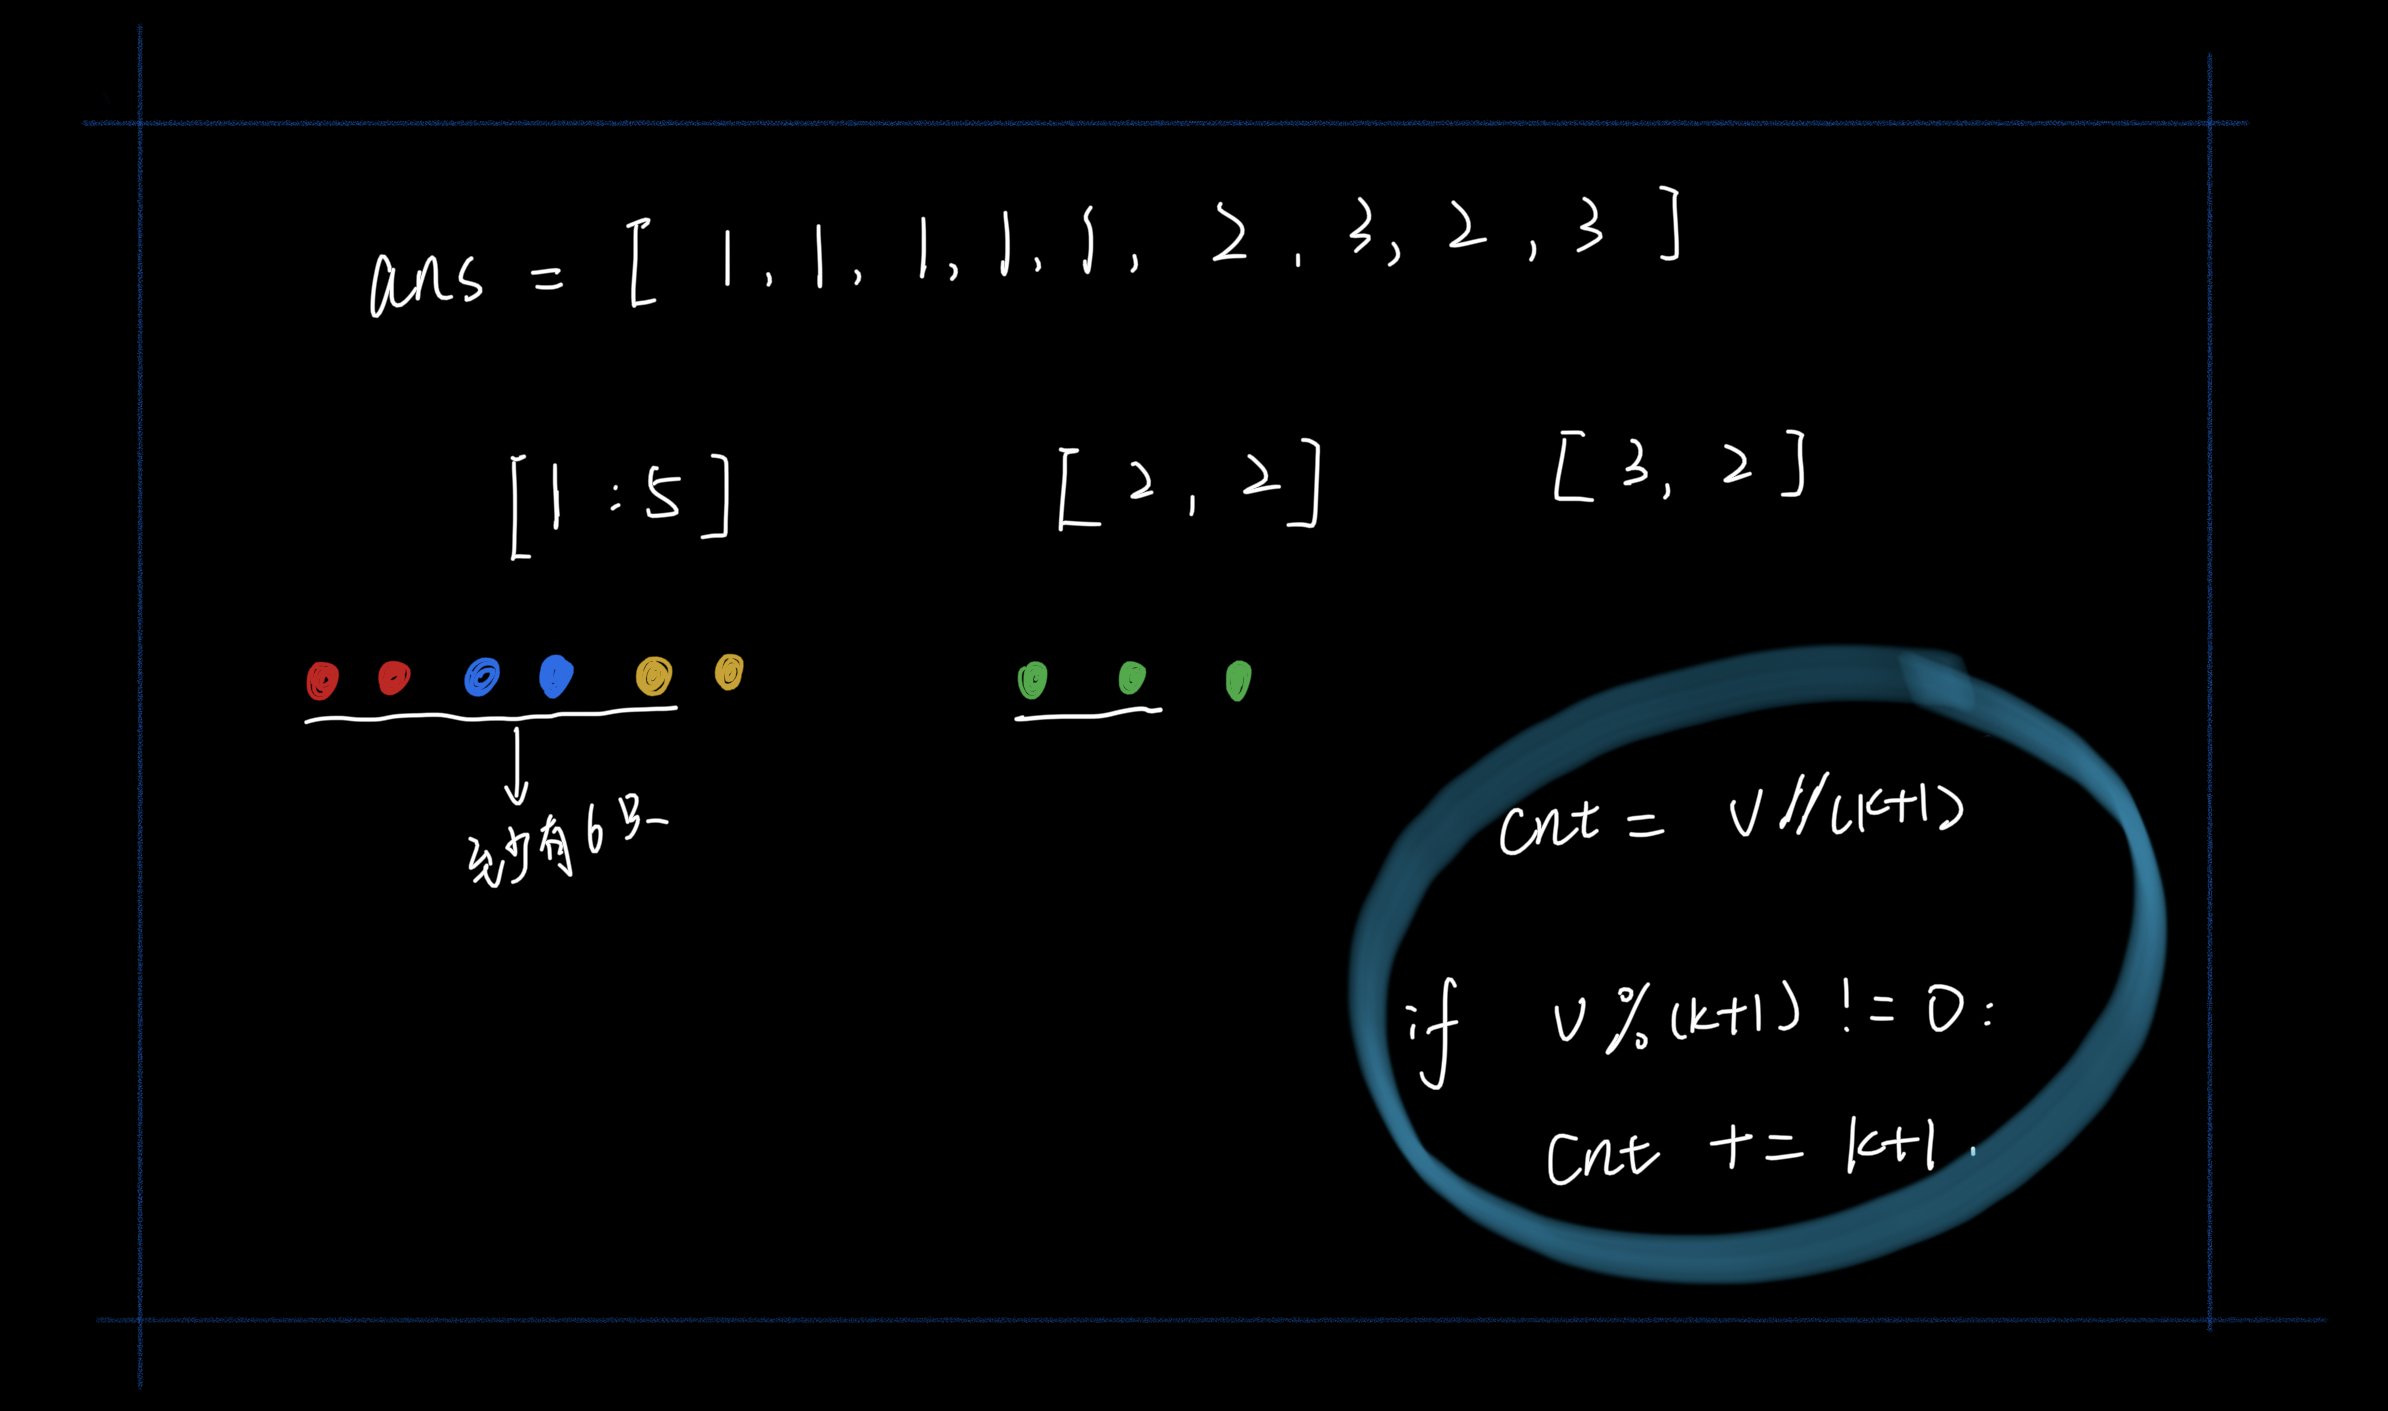 ans = [ 1, 1, 1, 1, 1, 2, 3, 2, 3 ]
[1 : 5] [2, 2] [3, 2]
至少有6只
cnt = v//(k+1)
if v%(k+1) != 0:
cnt += k+1.